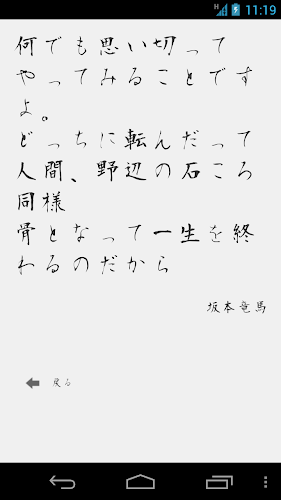 H 11:19
何でも思い切って
やってみることです
よ。
どっちに転んだって
人間、野辺の石ころ
同様
骨となって一生を終
わるのだから
坂本竜馬
戻る